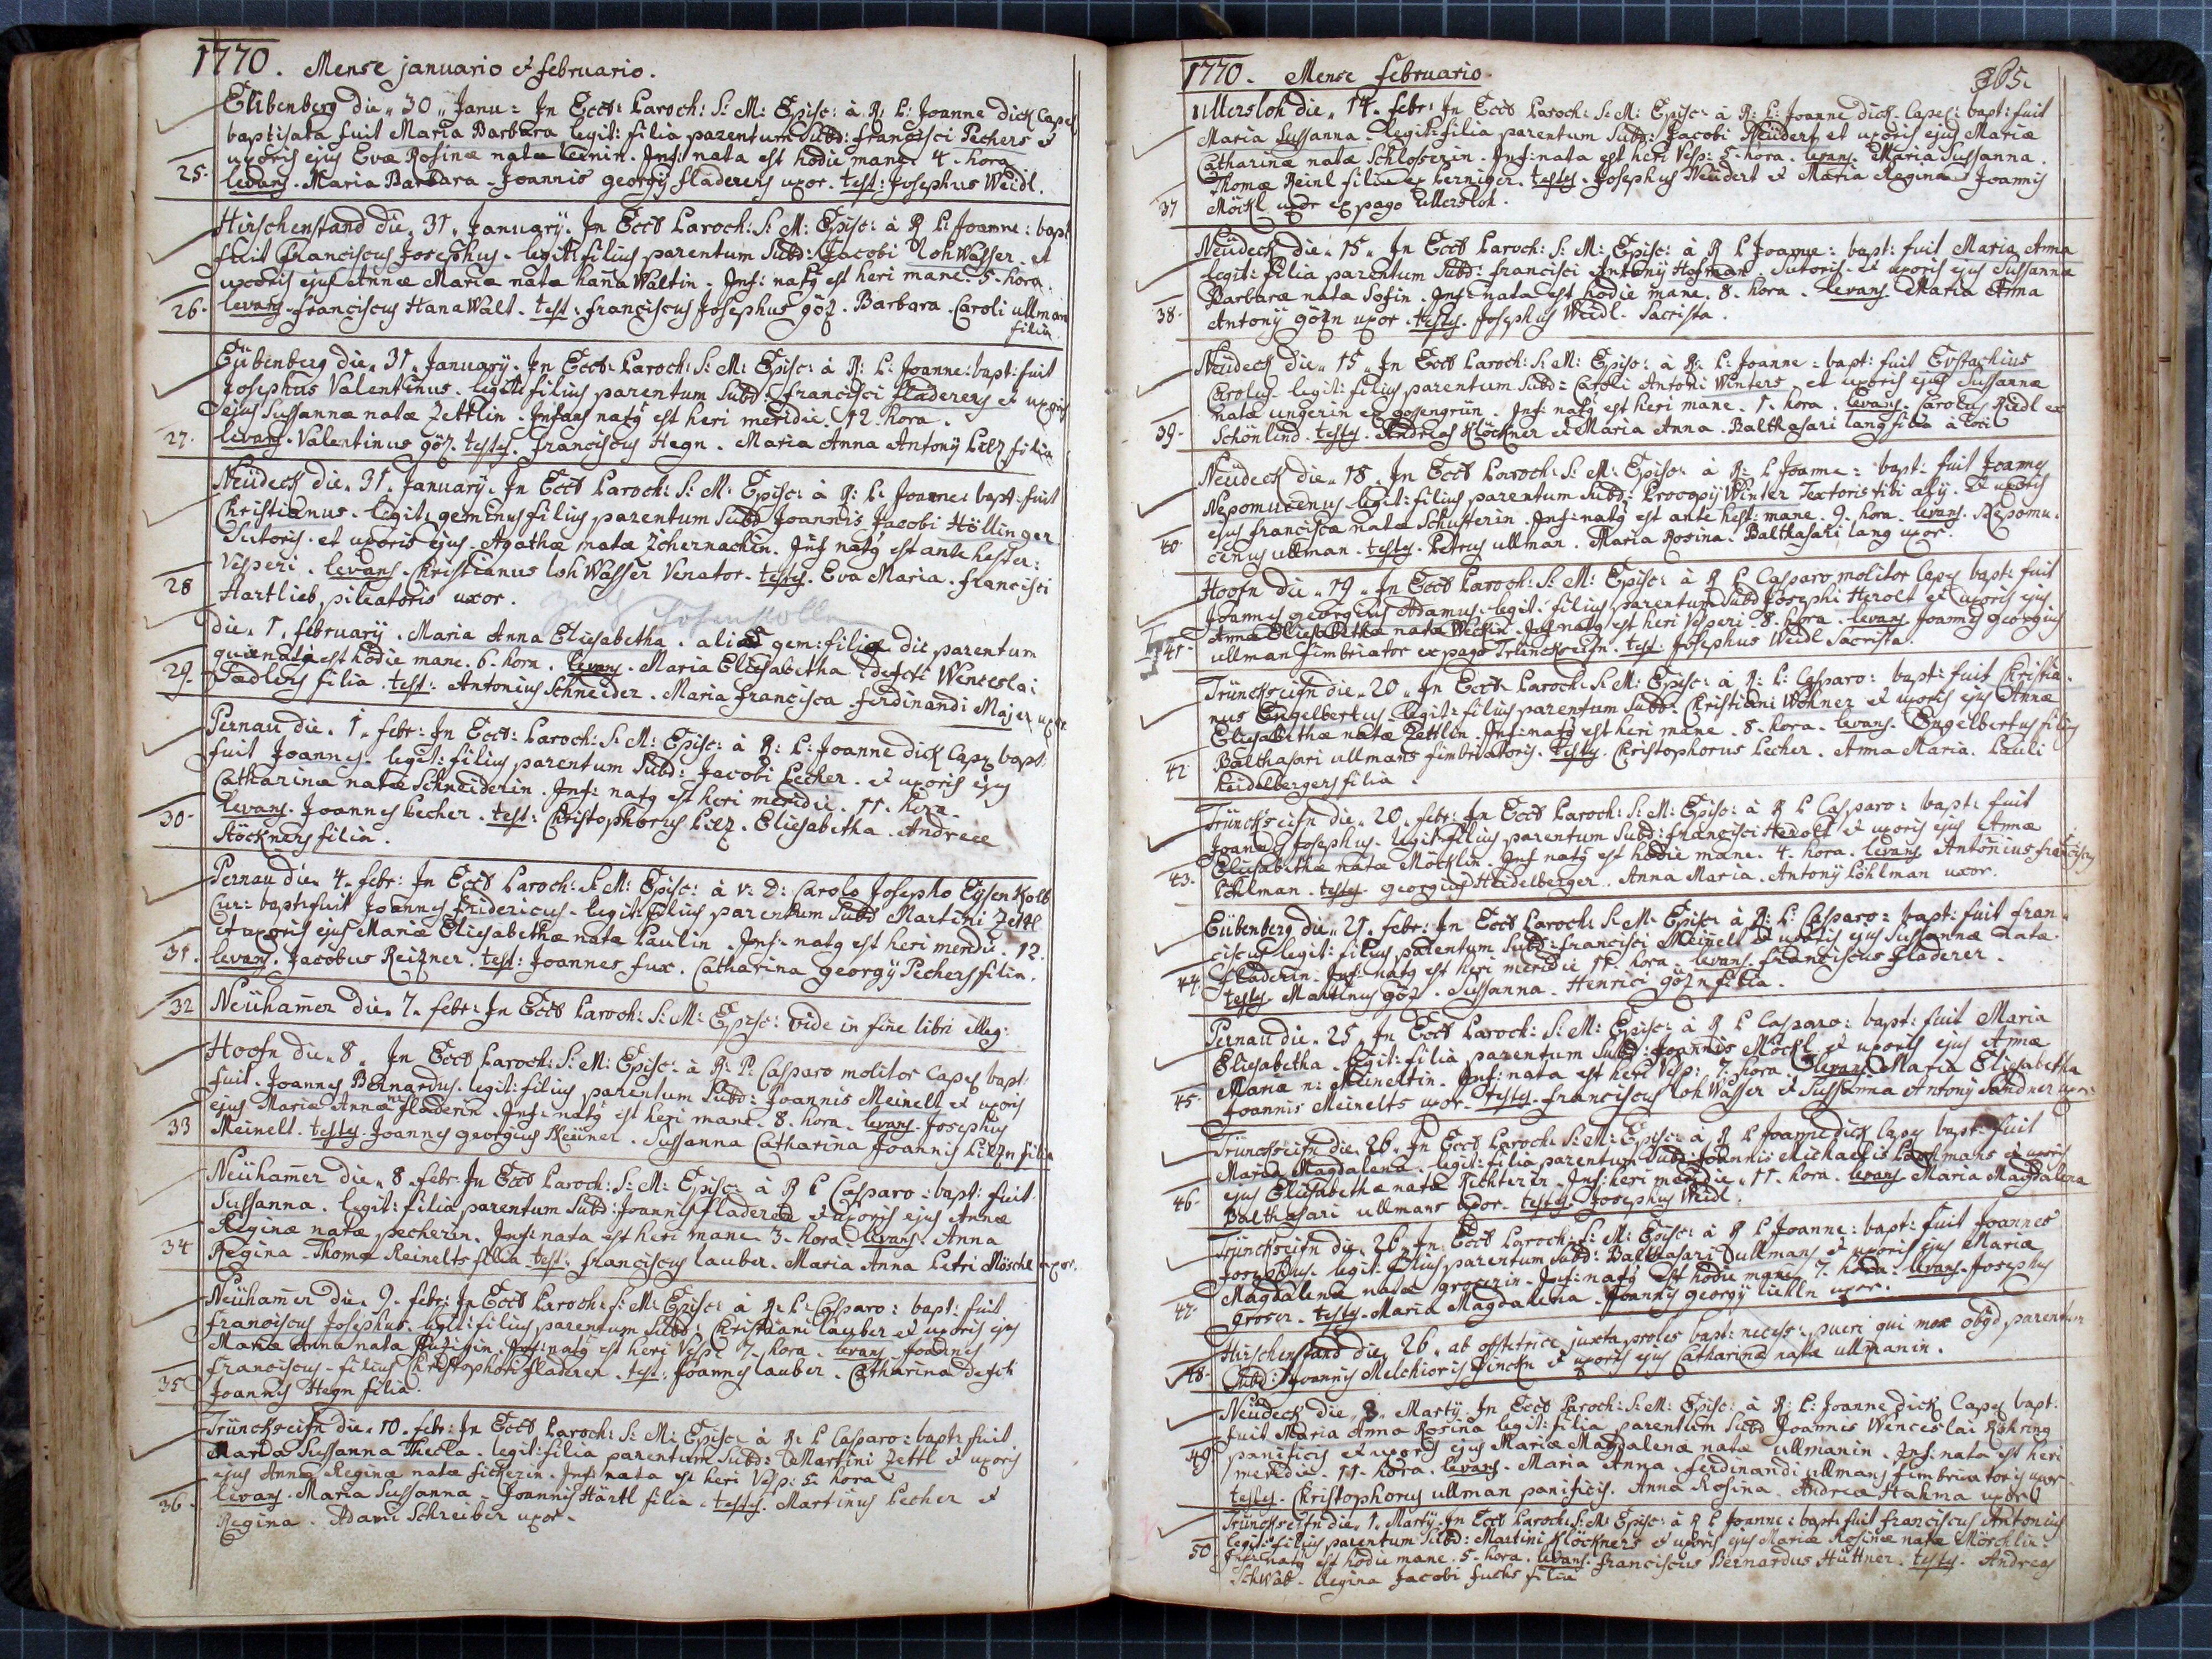 1770. Mense januario et februario.
Eübenberg die „30„ Janu: In Eccl: Paroch: S: M: Episc: à R: P: Joanne dick Capel
baptisata fuit Maria Barbara legit: filia parentum Subd: francisci Pechers et
uxoris ejus Evæ Rosinæ natæ Leinin. Inf: nata est hodie mane 4. hora
25. levans. Maria Barbara. Joannis georgij fladerers uxor. test: Josephus Weidl.
Hirschenstand die„ 31„ January. In Eccl Paroch: S: M: Episc: à R P: Joanne: bapt
fuit Franciscus Josephus. legit: filius parentum Subd: Jacobi lohWasser. et
uxoris ejus Annæ Mariæ nata hanaWaltin. Inf: natg est heri mane. 5. hora.
26. levans. franciscus HanaWalt. test: franciscus Josephus göz. Barbara. Caroli ullman
filia
Eübenberg die„ 31„ January. In Eccl: Paroch: S: M: Episc: à R: P: Joanne: bapt: fuit
Josephus Valentinus. legit: filius parentum Subd: francisci fladerers et uxoris
ejus Sussannæ natæ Zettlin. Infans natg est heri meridie. 12. hora.
27. levans. Valentinus göz. testes. franciscus Hegn. Maria Anna Antonij Pilz filia
Neüdeck die„ 31„ January. In Eccl Paroch: S: M: Episc: à R: P: Joanne: bapt: fuit
Christianus. legit: geminus filius parentum Subd Joannis Jacobi Höllinger
Sutoris. et uxoris ejus. Agathæ natæ Zchernachin. Inf natg est ante hester:
Vesperi. levans. Christianus lohWasser Venator. testes. Eva Maria. francisci
28 Hartlieb pileatoris uxor.
die„ 1„ february. Maria Anna Eliesabetha. alia gem: filia die parentum
quæ nata est hodie mane. 6. hora. levans. Maria Eliesabetha defcti Wenceslai
29. Tadlers filia. test: Antonius Schneider. Maria francisca. ferdinandi Majer uxor.
Pernau die„ 1„ febr: In Eccl: Paroch: S: M: Episc: à R: P: Joanne dick Capes bapt:
fuit Joannes. legit: filius parentum Subd: Jacobi Pecher. et uxoris ejus
Catharinæ natæ Schneiderin. Inf: natg est heri meridie. 11. hora.
levans. Joannes Pecher. test: Christophorus Pilz. Eliesabetha. Andreæ
30. Stöckners filia.
Pernau die„ 4„ febr: In Eccl Paroch: S: M: Episc: à V: D: Carolo Josepho EysenKolb
Cur: bapt: fuit Joannes fridericus. legit: filius parentum Subd Martini Zettl
et uxoris ejus Mariæ Eliesabethæ natæ Paulin. Inf: natg est heri meridie. 12.
31. levans. Jacobus Reizner. test: Joannes fux. Catharina georgij Pechers filia.
32 Neühamer die„ 7„ febr: In Eccl Paroch: S: M: Episc: vide in fine libri illeg:
Hoofn die„ 8„ In Eccl Paroch: S: M: Episc: à R: P: Casparo molitor Capes bapt:
fuit. Joannes Bernardus. legit: filius parentum Subd: Joannis Meinelt et uxoris
ejus Mariæ Annæ næ fladerin. Inf: natg est heri mane. 8. hora. levans. Josephus
33 Meinelt. testes. Joannes georgius Neüner. Sussanna Catharina Joannis Pilzn filia
Neühamer die„ 8„ febr: In Eccl Paroch: S: M: Episc: à R P Casparo: bapt: fuit
Sussanna. legit: filia parentum Subd: Joannis fladerers et uxoris ejus Annæ
Reginæ natæ pecherin. Inf: nata est heri mane 3. hora. levans. Anna
34 Regina. Thomæ Reinelts filia. test: franciscus lauber. Maria Anna Petri Möschl uxor.
Neühamer die„ 9„ febr: In Eccl Paroch: S: M: Episc: à R: P: Casparo: bapt: fuit
franciscus Josephus. legit: filius parentum Subd: Christiani lauber et uxoris ejus
Mariæ Anna nata. Inf: natg est heri Vesp: 7. hora. levans. Joannes
franciscus. filius Christophori fladerer. test: Joannes lauber. Catharina defcti
35 Joannis Hegn filia.
Trünckseifn die„ 10„ febr: In Eccl Paroch: S: M: Episc: à R: P Casparo: bapt: fuit
Maria Sussanna Thecla. legit: filia parentum Subd: Martini Zettl et uxoris
ejus Annæ Reginæ natæ fickerin. Inf: nata est heri Vesp: 5. hora
36. levans. Maria Sussanna. Joannis Härtl filia. testes. Martinus Pecher et
Regina. Adami Schreiber uxor.
1770. Mense februario. 365.
Ullersloh die„ 14„ febr: In Eccl Paroch: S: M: Episc: à R: P: Joanne dick Capes: bapt: fuit
Maria Sussanna. legit: filia parentum Subd: Jacobi Neüdert et uxoris ejus Mariæ
Catharinæ natæ Schlosserin. Inf: nata est heri Vesp: 5. hora. levans. Maria Sussanna.
Thomæ Reinl filia ex Perniger. testes. Josephus Neüdert et Maria Regina Joannis
37 Möckl uxor ex pago Ullersloh.
Neüdeck die„ 15„ In Eccl Paroch: S: M: Episc: à R P Joanne: bapt: fuit Maria Anna
legit: filia parentum Subd: francisci Antonij Hofman. Sutoris. et uxoris ejus Sussannæ
Barbaræ natæ Sofin. Inf: nata est hodie mane. 8. hora. levans. Maria Anna
38. Antonij gözn uxor. testes. Josephus Weidl. Sacrista.
Neüdeck die„ 15„ In Eccl Paroch: S: M: Episc: à R: P: Joanne: bapt: fuit Evstachius
Carolus. legit: filius parentum Subd: Caroli Antoni Winters. et uxoris ejus Sussannæ
natæ ungerin ex gosengrün. Inf: natg est heri mane. 1. hora. levans. Carolus Riedl ex
39. Schönlind. testes. Andreas Klöckner et Maria Anna. Balthasari lang filia à loci
Neüdeck die„ 18„ In Eccl Paroch: S: M: Episc: à R: P Joanne: bapt: fuit Joannes
Nepomucenus legit: filius parentum Subd: Procopij Winter Textoris tibialij. et uxoris
ejus franciscæ natæ Schusterin. Inf: natg est ante hest: mane. 9. hora. levans. Nepomu.
40 cenus ullman. testes. Petrus ullman. Maria Rosina. Balthasari lang uxor.
Hoofn die„ 19„ In Eccl Paroch: S: M: Episc: à R P Casparo molitor Capes bapt: fuit
Joannes georgius Adamus. legit: filius parentum Subd Josephi Herolt et uxoris ejus
Annæ Eliesabethæ natæ. Inf: natg est heri Vesperi. 8. hora. levans Joannes georgius
41. ullman fimbriator ex pago Trünckseifn. test: Josephus Weidl Sacrista.
Trünckseifn die„ 20„ In Eccl Paroch: S: M: Episc: à R: P: Casparo: bapt: fuit Christia.
nus Engelbertus legit: filius parentum Subd: Christiani Wohner et uxoris ejus Annæ
Eliesabethæ natæ Zettlin. Inf: natg est heri mane. 8. hora. levans. Engelbertus filius
42 Balthasari ullmans fimbriatoris. testes. Christophorus Pecher. Anna Maria. Pauli
Heidelbergers filia.
Trünckseifn die„ 20„ febr: In Eccl Paroch: S: M: Episc: à R P Casparo: bapt: fuit
Joannes Josephus. legit: filius parentum Subd: francisci Herolt et uxoris ejus Annæ
Eliesabethæ natæ Möcklin. Inf natg est hodie mane. 4. hora. levans Antonius franciscus
43. Pöhlman. testes. georgius Heidelberger. Anna Maria. Antonij Pöhlman uxor.
Eübenberg die„ 21„ febr: In Eccl Paroch: S: M: Episc: à R: P: Casparo: bapt: fuit fran„
ciscus legit: filius parentum Subd: francisci Meinelt et uxoris ejus Sussannæ natæ
44. fladerin. Inf: natg est heri meridie 11. hora. levans. franciscus fladerer.
testes. Martinus göz. Sussanna. Henrici gözn filia.
Pernau die„ 25„ In Eccl Paroch: S: M: Episc: à R P Casparo: bapt: fuit Maria
Eliesabetha. legit: filia parentum Subd: Joannis Möckl et uxoris ejus Annæ
Mariæ n: Meineltin. Inf: nata est heri Vesp: 7. hora. levans Maria Eliesabetha
45. Joannis Meinelts uxor. testes. franciscus lohWasser et Sussanna Antonij Sandner uxor.
Trünckseifn die„ 26„ In Eccl Paroch: S: M: Episc: à R P Joanne dick Capes bapt: fuit
Maria Magdalena. legit: filia parentum Subd: Joannis Michaelis Pöhlmans et uxoris
ejus Eliesabethæ natæ Richterin. Inf: heri meridie. 11. hora. levans Maria Magdalena
46. Balthasari ullmans uxor. testes. Josephus Weidl.
Trünckseifn die„ 26„ In Eccl Paroch: S: M: Episc: à R P Joanne: bapt: fuit Joannes
Josephus. legit: filius parentum Subd: Balthasari ullmans et uxoris ejus Mariæ
Magdalenæ natæ groserin. Inf: natg est hodie mane. 7. hora: levans. Josephus
47. Groser. testes. Maria Magdalena. Joannis georgij liehln uxor.
Hirschenstand die„ 26„ ab obstetrice juxta proles bapt: necess: pueri qui mox obijt parentum
48. Subd: Joannis Melchioris finckn et uxoris ejus Catharinæ natæ ullmanin.
Neüdeck die„ 3„ Martij. In Eccl Paroch: S: M: Episc: à R: P: Joanne dick Capes bapt:
fuit Maria Anna Rosina legit: filia parentum Subd Joannis Wenceslai Röhring
49 panificis et uxoris ejus Mariæ Magdalenæ natæ ullmanin. Inf: nata est heri
meridie. 11. hora. levans. Maria Anna. ferdinandi ullmans fimbriatoris uxor.
testes. Christophorus ullman panificis. Anna Rosina. Andreæ Stahma uxor
Trünckseifn die„ 1„ Martij. In Eccl Paroch: S: M: Episc: à R P Joanne: bapt: fuit franciscus Antonius
legit: filius parentum Subd: Martini Klöckners et uxoris ejus Mariæ Rosinæ natæ Möschlin.
50 Inf: natg est hodie mane. 5. hora. levans. franciscus Bernardus Hüttner. testes. Andreas
Schwab. Regina Jacobi fuchs filia